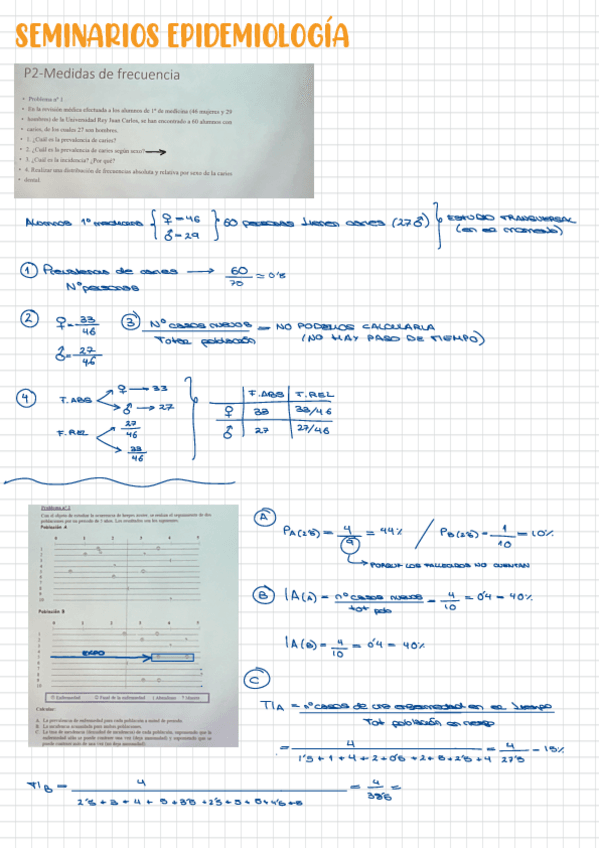 SEMINARIOS EPIDEMIOLOGÍA
P2-Medidas de frecuencia
• Problema nº 1
• En la revisión médica efectuada a los alumnos de 1º de medicina (46 mujeres y 29
• hombres) de la Universidad Rey Juan Carlos, se han encontrado a 60 alumnos con
• caries, de los cuales 27 son hombres.
• 1. ¿Cuál es la prevalencia de caries?
• 2. ¿Cuál es la prevalencia de caries según sexo?
• 3. ¿Cuál es la incidencia? ¿Por qué?
• 4. Realizar una distribución de frecuencias absoluta y relativa por sexo de la caries
• dental
Alumnos 1º medicina { ♀ = 46 ♂ = 29 } 60 personas tienen caries (27 ♂) } ESTUDIO TRANSVERSAL
(en ese momento)
① Prevalencia de caries → 60/70 = 0'8
Nº personas
② ♀ = 33/46
♂ = 27/46
③ Nº casos nuevos / Total población = NO PODEMOS CALCULARLA
(NO HAY PASO DE TIEMPO)
④ F. ABS ♀ → 33
♂ → 27
F. REL 27/46
33/46
F. ABS F. REL
♀ 33 33/46
♂ 27 27/46
Problema nº 2
Con el objeto de estudiar la ocurrencia de herpes zóster, se realiza el seguimiento de dos
poblaciones por un periodo de 5 años. Los resultados son los siguientes:
Población A
0 1 2 3 4 5
1
2
3
4
5
6
7
8
9
10
Población B
0 1 2 3 4 5
1
2
3
4
5
6
7
8
9
10
EXPO
Enfermedad Final de la enfermedad Abandono Muerte
Calcular:
A. La prevalencia de enfermedad para cada población a mitad de periodo.
B. La incidencia acumulada para ambas poblaciones.
C. La tasa de incidencia (densidad de incidencia) de cada población, suponiendo que la
enfermedad sólo se puede contraer una vez (deja inmunidad) y suponiendo que se
puede contraer más de una vez (no deja inmunidad).
Ⓐ PA(2'5) = 4/9 = 44% / PB(2'5) = 1/10 = 10%
PORQUE LOS FALLECIDOS NO CUENTAN
Ⓑ IA(A) = nº casos nuevos / tot pob = 4/10 = 0'4 = 40%
IA(B) = 4/10 = 0'4 = 40%
Ⓒ
TIA = nº casos de una enfermedad en el tiempo
Tot población en riesgo
= 4 / 1'5 + 1 + 4 + 2 + 0'5 + 2 + 5 + 2'5 + 4 = 4/27'5 = 15%
TIB = 4 / 2'5 + 3 + 4 + 5 + 3'5 + 2'5 + 5 + 5 + 4'5 + 5 = 4/38'5 =